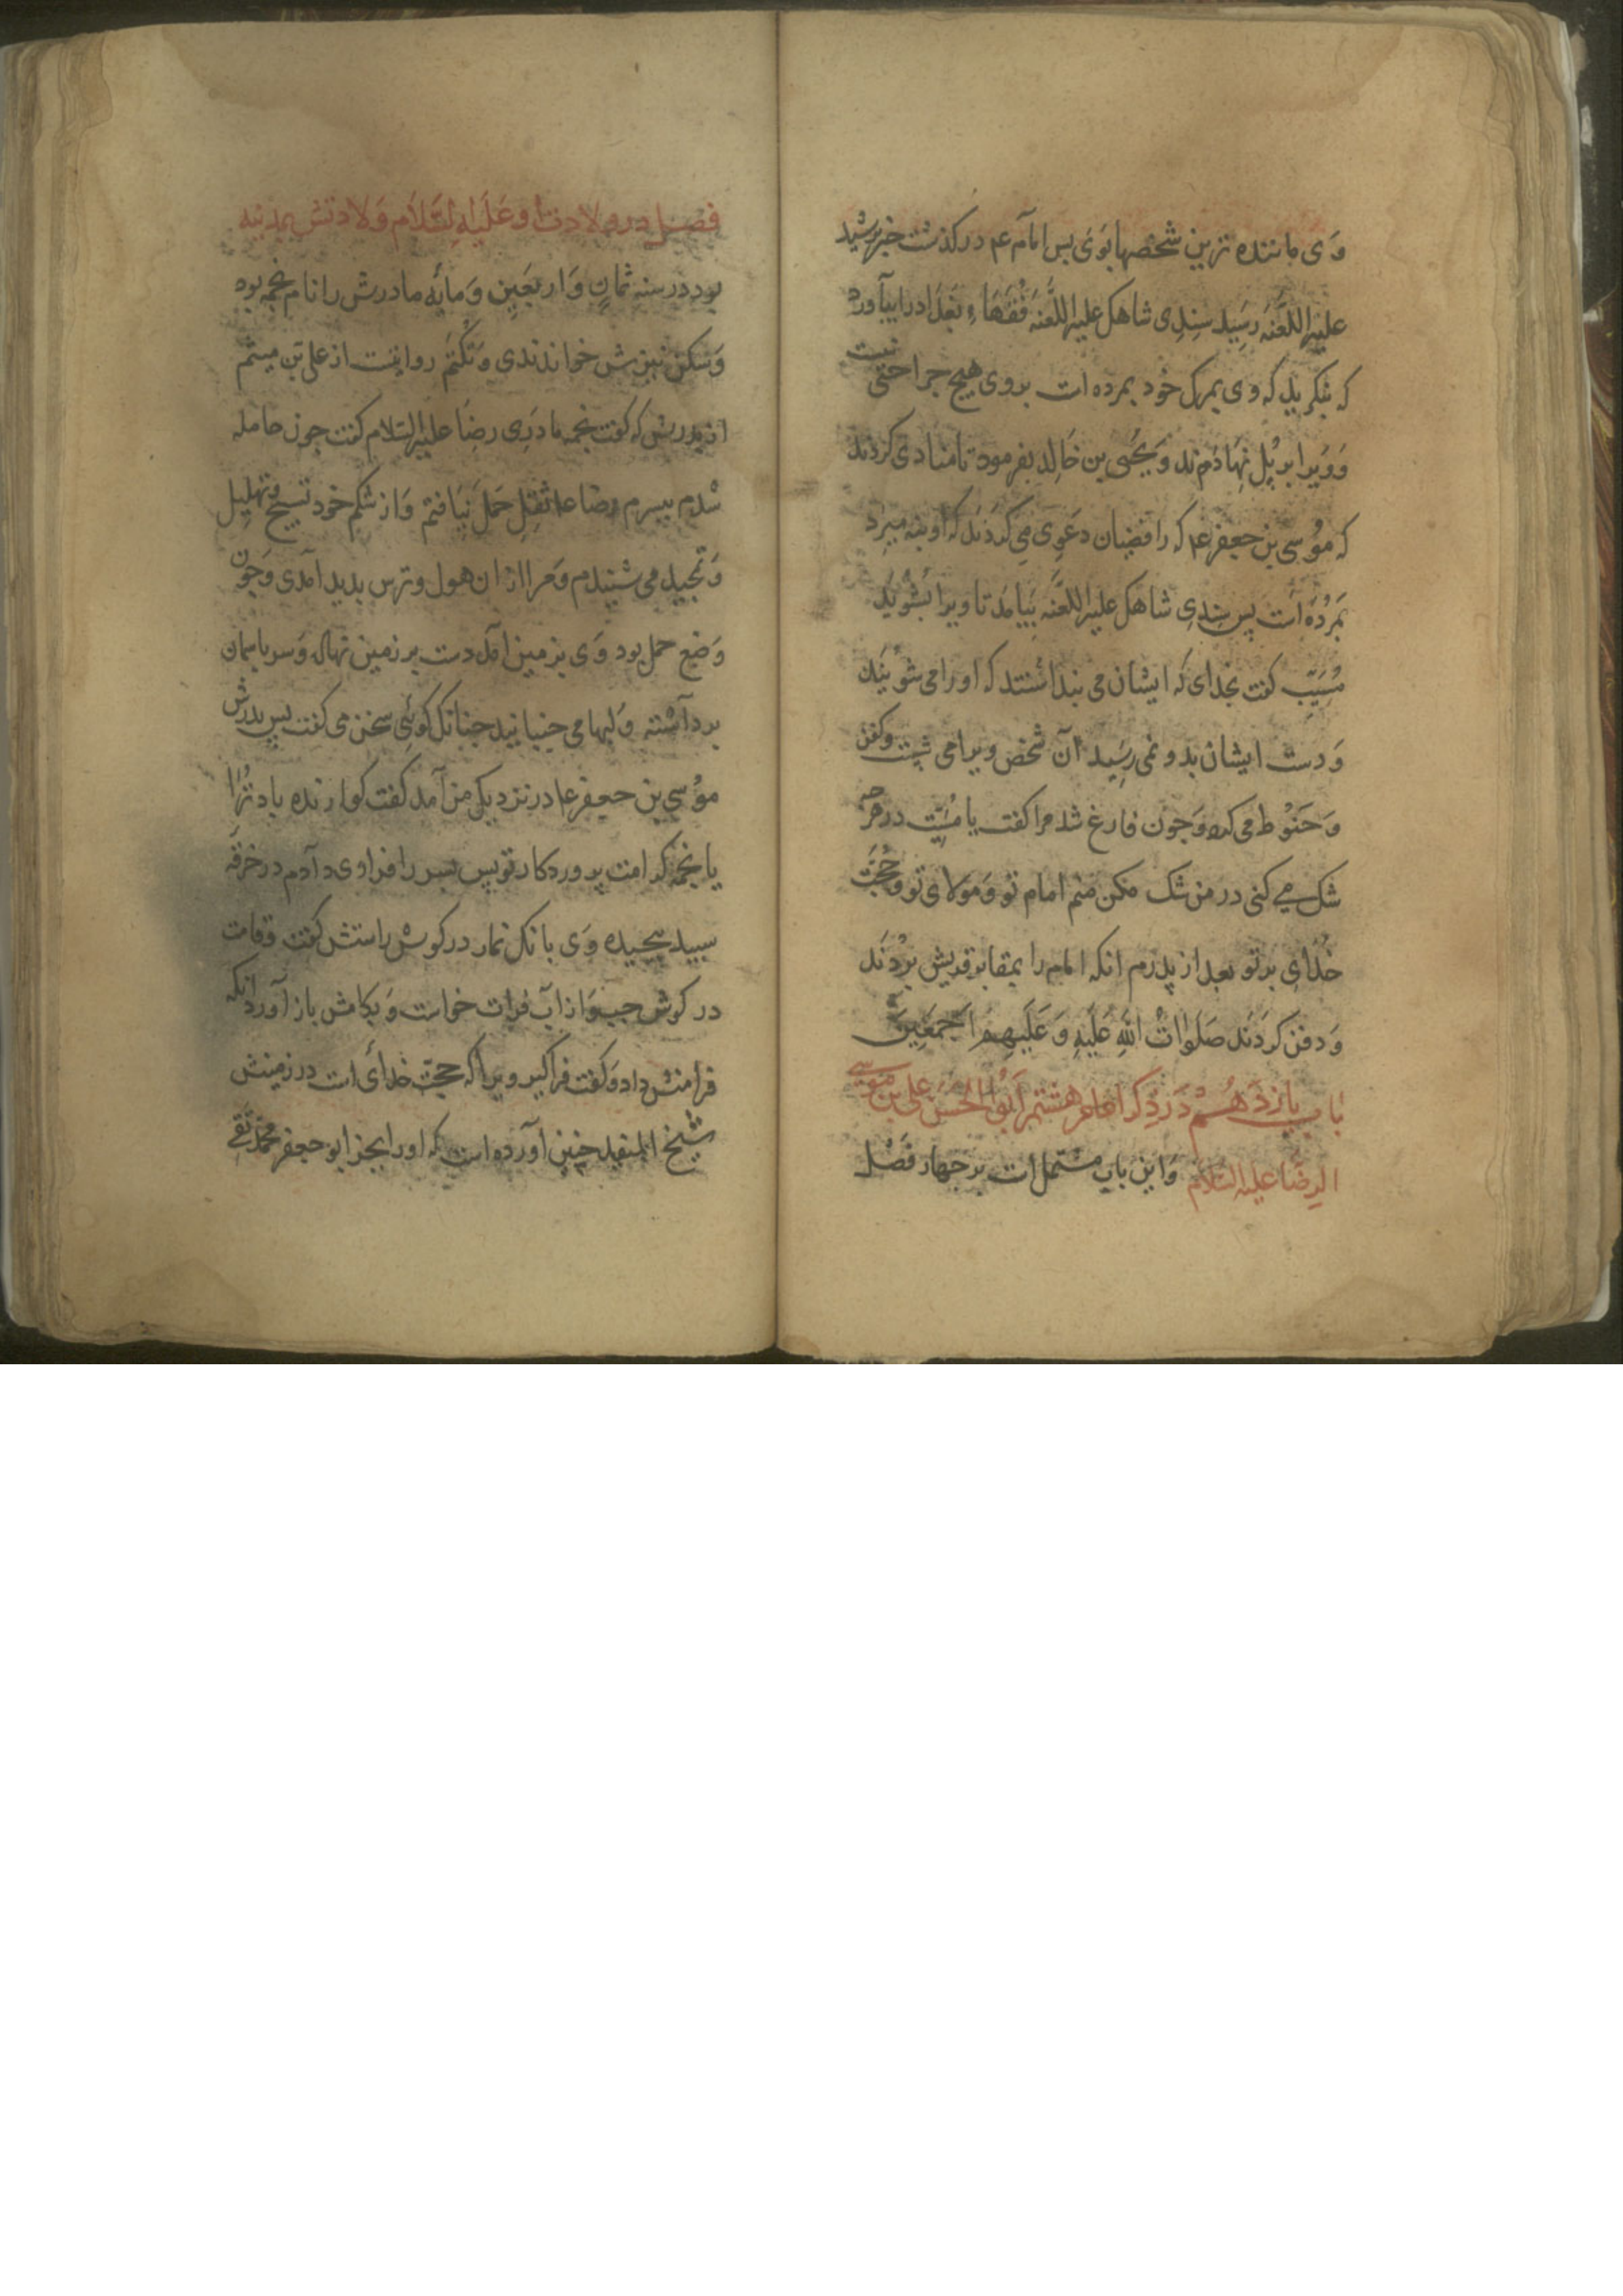 وَی مانندہ ترین شخصها بَوی پس امام عم درکذشت خبر برشید
علیه اللَّعنَه رسَید سِندِی شاهک علیه اللَّعنَه فُقَهَاءِ بَغدَاد را بیآورد
که بنکرید که وی بمرک خود بمرده است بروی هیچ جراحتی نیست
وَوَیرا بر پل نهادند وَیَحیی بن خَالِد بفرمود تا منادی کردند
که مُوسی بن جعفر عم که رافضیان دعَوی می کردَند که او بنه میرد
بمُردَه است پس سِندِی شاهک علیه اللَّعنَه بیامَد تا ویرا بشُوید
مُسَیّب کفت بخدای که ایشان می پنداشتند که اورا می شویند
وَ دست ایشان بدو نمی رسَید آن شخص ویرا می شست وکفن
وَ حَنوُط می کرد وَجون فارغ شد مرا کفت یا مُسَیّب در هرچه
شک می کنی در من شک مکن منم امام تو وَ مَولای تو وَ حُجَّت
خُدَای برتو بعد از پدرم انکه امام را بمقابر قریش بُردَند
وَ دفن کردَند صَلَواتُ اللهِ عَلَیهِ وَ عَلَیهِم اَجمَعِین
باب یازدَهُم دَر ذِکر امام هشتم اَبُو الحَسَن علی بن موُسی
الرضَا علیه السَّلام وَاین باب مشتمل است بر جهار فَصل
فصل در ولادت او عَلَیهِ السَّلَام وَلادتش بمدینه
بود در سنه ثمانٍ وَ اربَعَین وَ مایَه مادرش را نام نجمه بود
وَسَکن نیزش خواندندی وَ تُکتَم روایتست از علی بن میثم
از پدرش که کفت نجمه مادَرِ رضَا علیه السَّلام کفت چون حامله
شدم بپسرم رضا عا ثقل حَمل نیَافتم وَ از شکم خود تسبیح و تهلیل
وَ تمجید می شنیدم و مرا از ان هول و ترس بدید آمدی وَچون
وَضع حمل بود وَی بزمین آمد دست بر زمین نهاد وَ سر باسمان
برداشته وَ لبها می جنبانید چنانک کوئی سخن می کفت پس پدرش
موُسی بن جعفر عا در نزدیک من آمد کفت کوارنده باد تُرا
یا نجمَه کرامت پروردکار تو پس پسر را فرا وی دادم در خرقَه
سپید پیچیده وَی بانک نماز در کوش راستش کفت و قامت
در کوش چپ وَ از آب فرات خواست وَ بکامش باز آورد انکه
فرا منش داد وَ کفت فراکیر ویرا که حجّت خدای است در زمینش
شیخ المفید چنین آورده است که اورا بجز ابو جعفر محمّد تقی